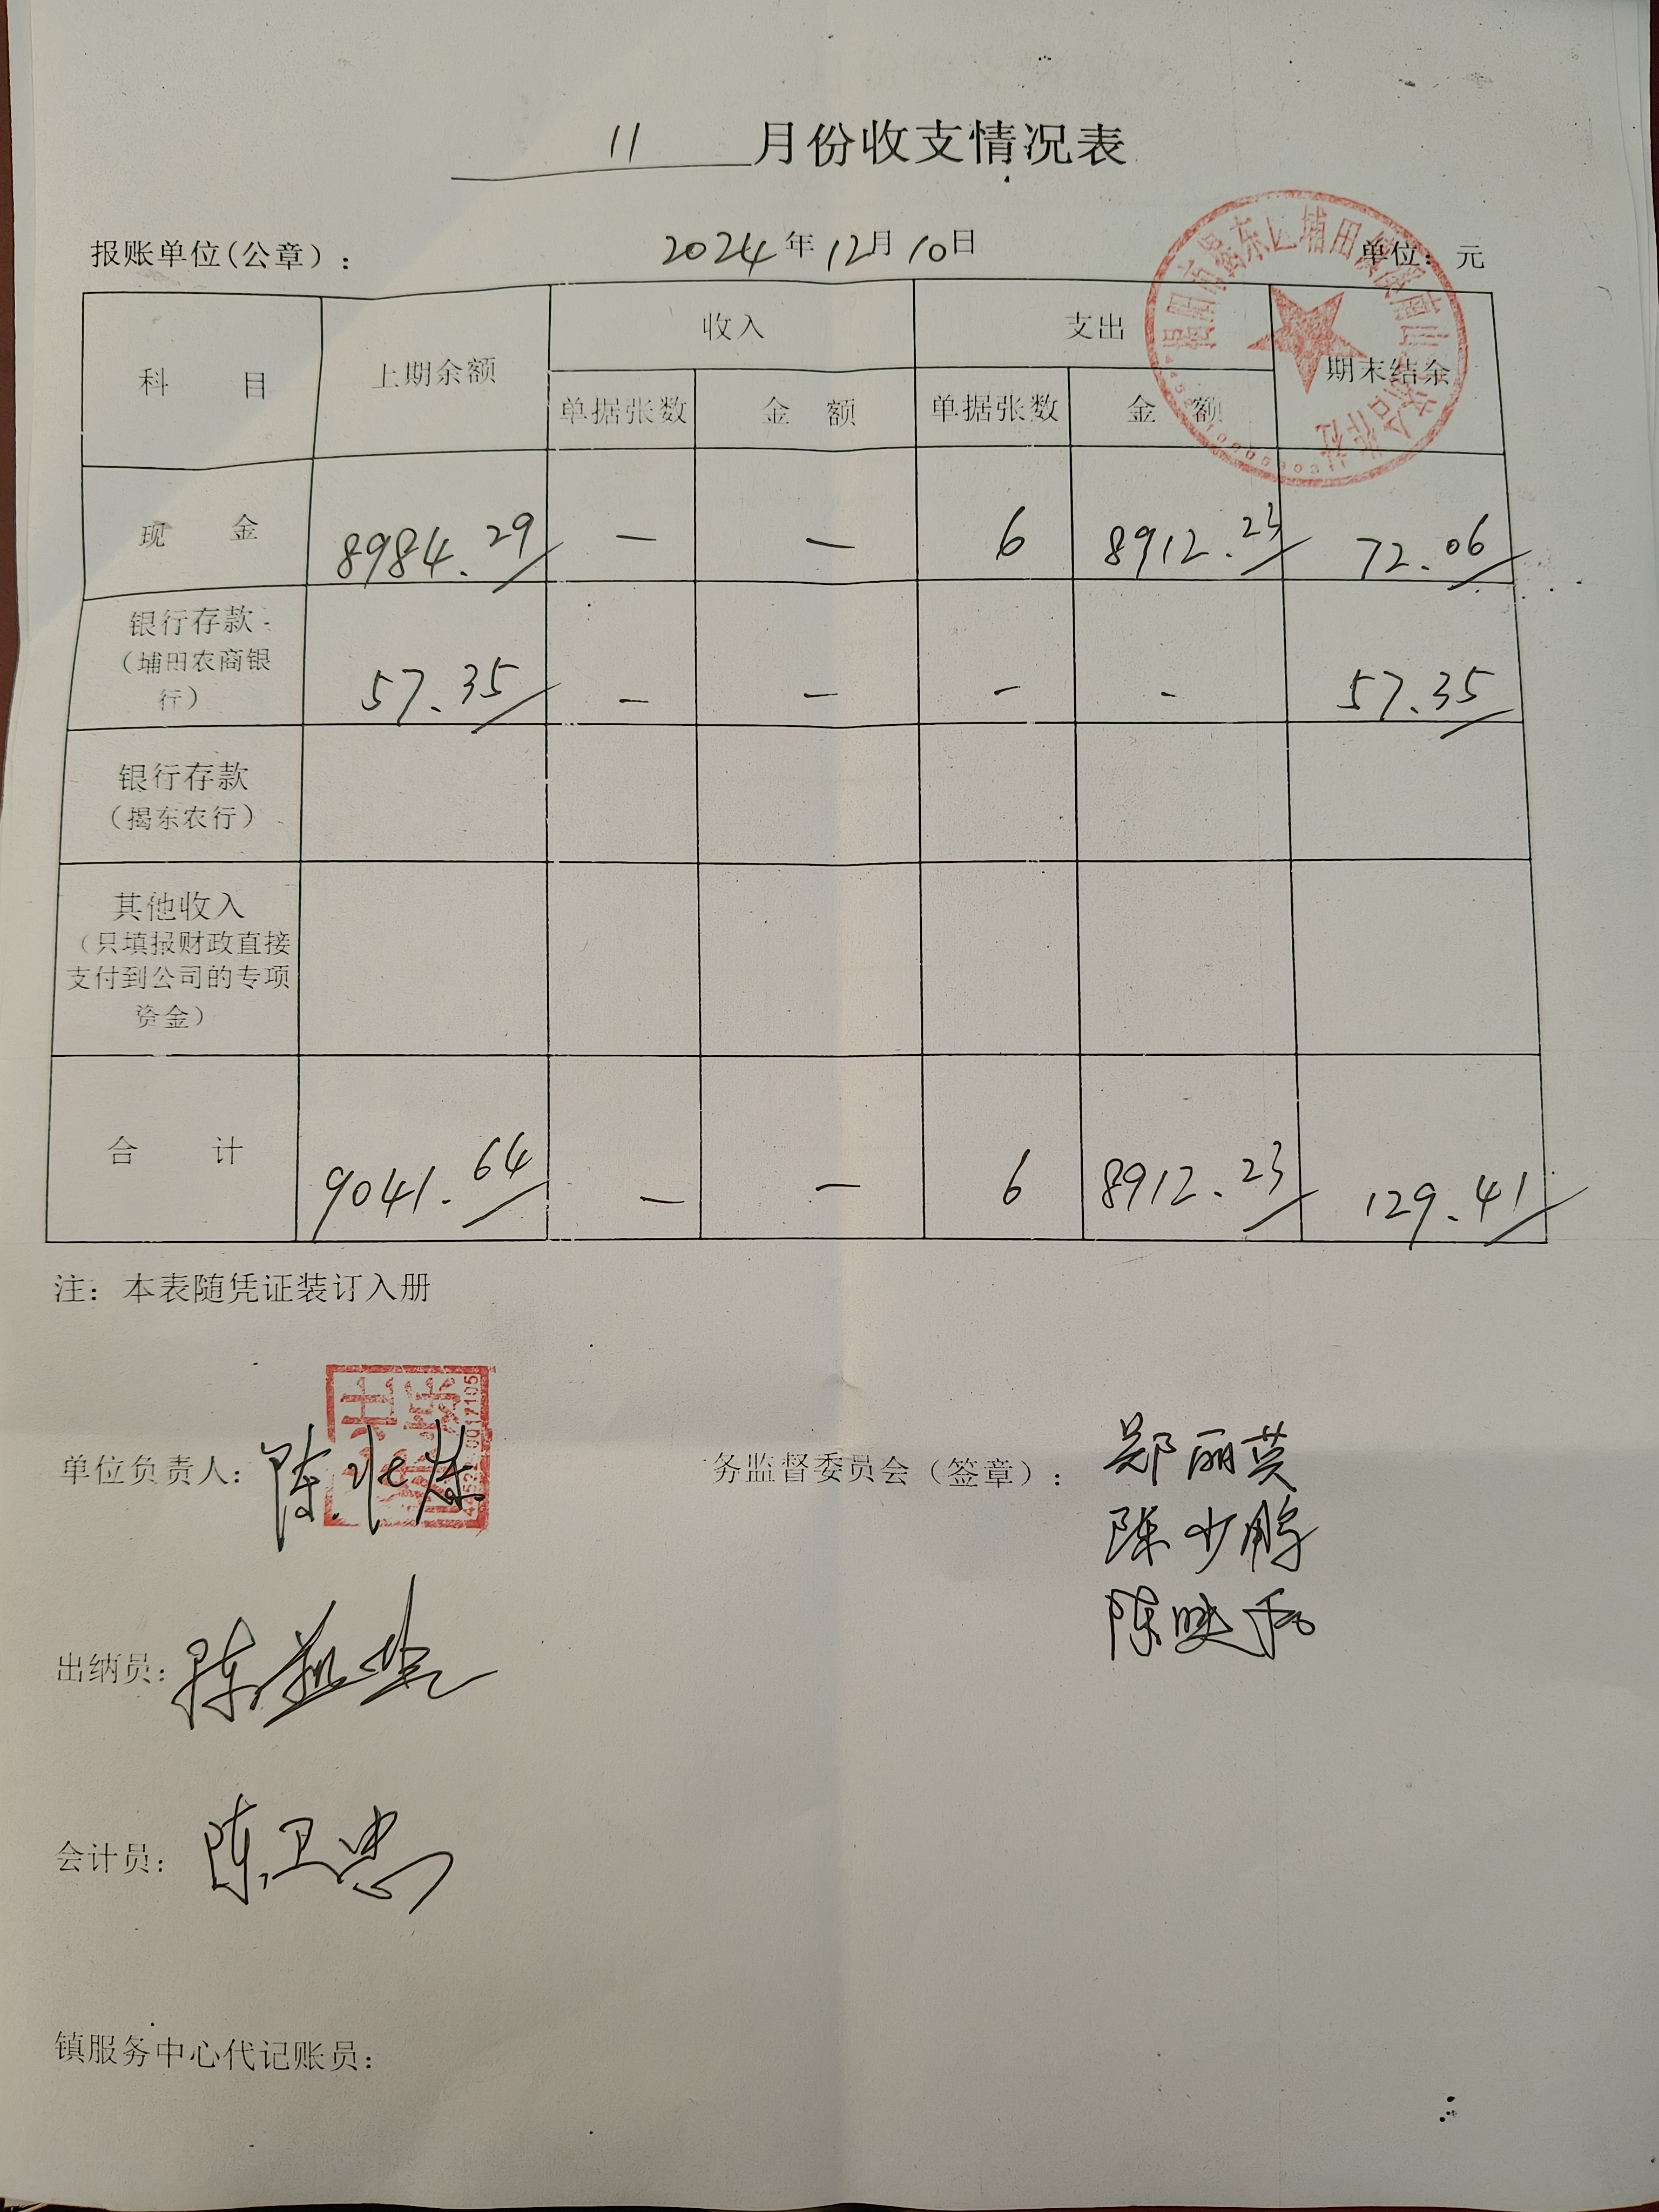 11 月份收支情况表
报账单位(公章): 2024年12月10日 单位: 元
科 目 上期余额 收入 支出 期末结余
单据张数 金 额 单据张数 金 额
现 金 8984.29 — — 6 8912.23 72.06
银行存款
(埔田农商银
行) 57.35 — — - - 57.35
银行存款
(揭东农行)
其他收入
(只填报财政直接
支付到公司的专项
资金)
合 计 9041.64 — — 6 8912.23 129.41
注: 本表随凭证装订入册
单位负责人: 陈 务监督委员会(签章): 郑丽英
陈少鹏
陈映
出纳员: 陈
会计员: 陈卫忠
镇服务中心代记账员: